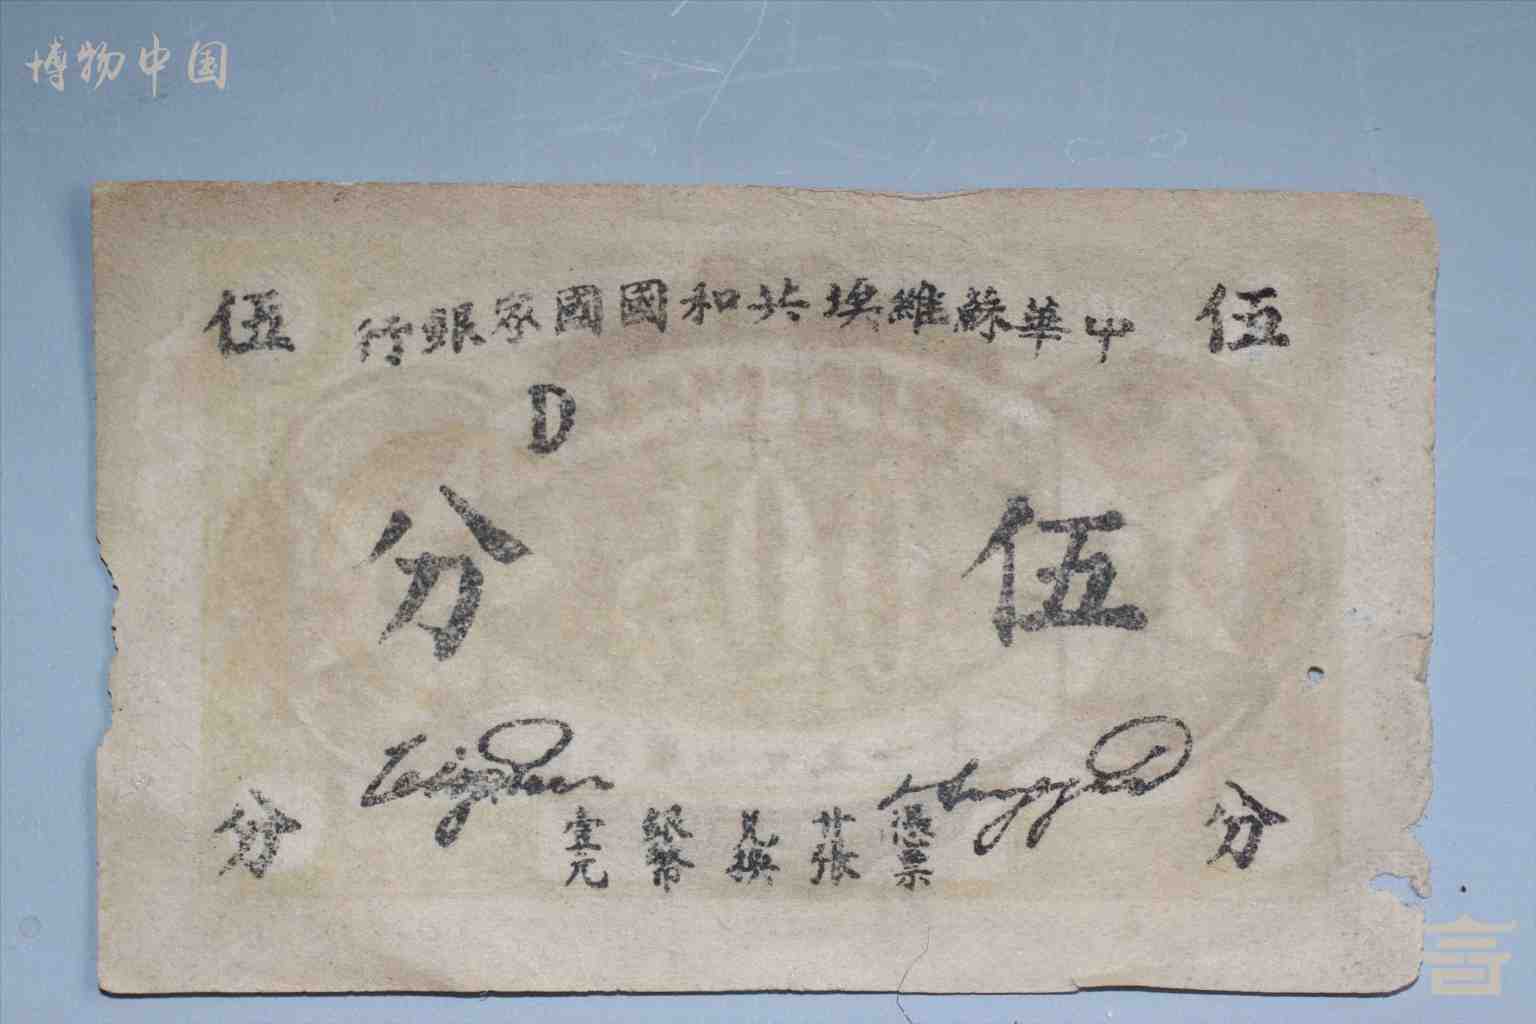 博物中国
中華蘇維埃共和國國家銀行
伍
伍
D
伍分
分
分
憑票
廿張
兌換
銀幣
壹元